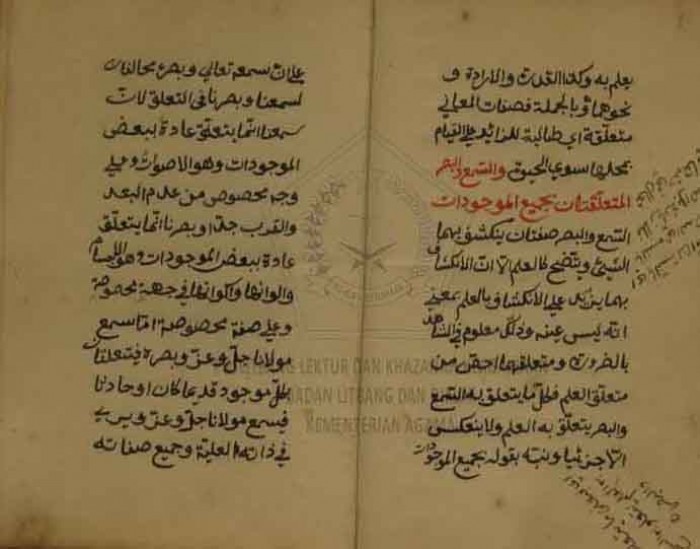 يعلم به وكذا القدرة والارادة و
نحوهما وبالجملة فصفات المعاني
متعلقة اي طالبة للزائد على القيام
بمحلها سوى الحيوة والسمع والبصر
المتعلقتان بجميع الموجودات
السمع والبصر صفتان ينكشف بهما
الشيئ ويتضح كالعلم الا ان الانكشاف
بهما يزيد على الانكشاف بالعلم بمعنى
انه ليس عينه وذلك معلوم في الشاهد
بالضرورة ومتعلقهما اخص من
متعلق العلم فكل ما يتعلق به السمع
والبصر يتعلق به العلم ولا ينعكس
الا جزئيا ونبه بقوله بجميع الموجودات
على ان سمعه تعالى وبصره مخالفان
لسمعنا وبصرنا في التعلق لان
سمعنا انما يتعلق عادة ببعض
الموجودات وهو الاصوات وعلى
وجه مخصوص من عدم البعد
والقرب جدا وبصرنا انما يتعلق
عادة ببعض الموجودات وهو الاجسام
والوانها واكوانها في جهة مخصوصة
وعلى صفة مخصوصة اما سمع
مولانا جل وعز وبصره فيتعلقان
بكل موجود قديما كان او حادثا
فيسمع مولانا جل وعز ويرى
في ذاته العلية وجميع صفاته
LEKTUR DAN KHAZANAH
BADAN LITBANG DAN
KEMENTERIAN AGAMA